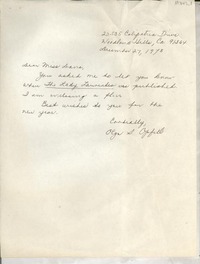 Woodland Hills, Ca. 91364
December 27, 1970
Dear Miss
You asked me to let you know
when The Lady Laureates was published.
I am enclosing a flier.
Best wishes to you for the
new year.
Cordially,
Olga S. Opfell